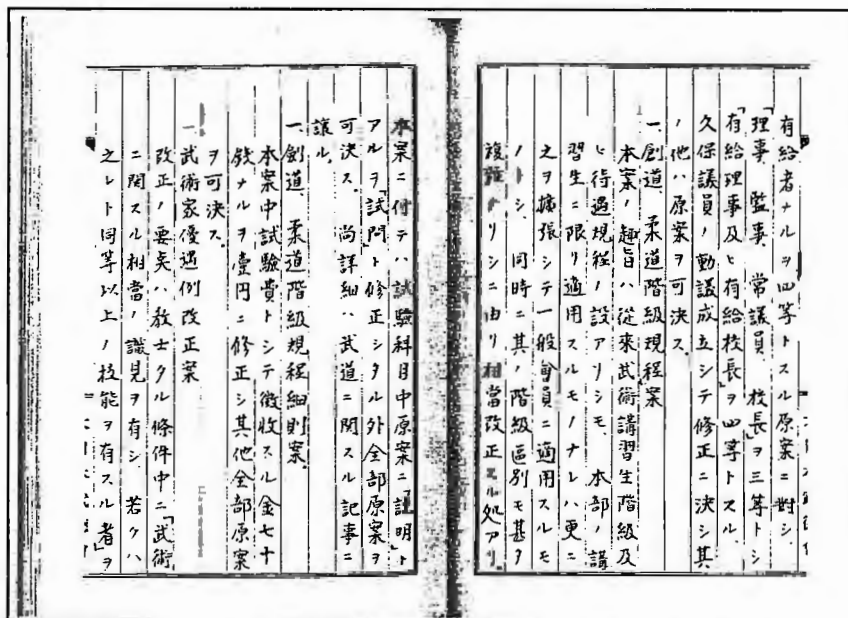 有給者ナルヲ四等トスル原案ニ對シ、
「理事、監事、常議員、校長」ヲ三等トシ
「有給理事及ヒ有給校長」ヲ四等トスル、
久保議員ノ動議成立シテ修正ニ決シ其
ノ他ハ原案ヲ可決ス。
一、劍道、柔道階級規程案
本案ノ趣旨ハ從来武術講習生階級及
ヒ待遇規程ノ設アリシモ、本部ノ講
習生ニ限リ適用スルモノナレハ更ニ
之ヲ擴張シテ一般會員ニ適用スルモ
ノトシ、同時ニ其ノ階級區別モ甚タ
複雜ナリシニ由リ相當改正スル処アリ。
本案ニ付テハ試驗科目中原案ニ「証明」ト
アルヲ「試問」ト修正シタル外全部原案ヲ
可決ス。尚詳細ハ武道ニ関スル記事ニ
譲ル。
一、劍道、柔道階級規程細則案。
本案中試驗費トシテ徴收スル金七十
錢ナルヲ壹円ニ修正シ其他全部原案
ヲ可決ス。
一、武術家優遇例改正案
改正ノ要点ハ教士タル條件中ニ「武術
ニ関スル相當ノ識見ヲ有シ、若クハ
之レト同等以上ノ技能ヲ有スル者」ヲ